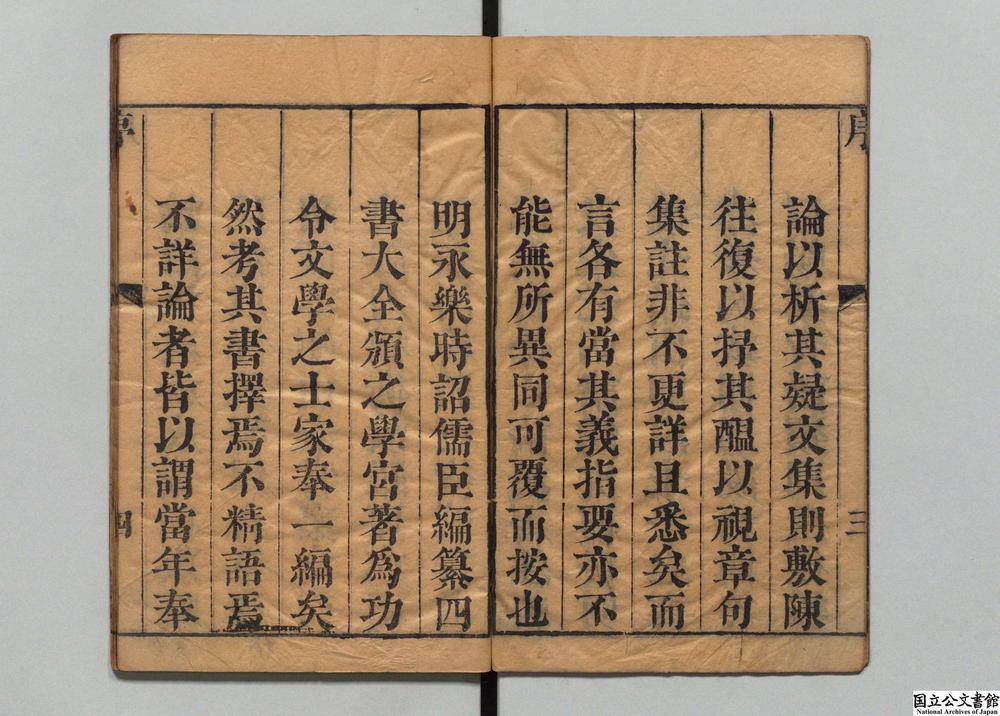 序
三
論以析其疑文集則敷陳
往復以抒其醞以視章句
集註非不更詳且悉矣而
言各有當其義指要亦不
能無所異同可覆而按也
明永樂時詔儒臣編纂四
書大全頒之學宮著爲功
令文學之士家奉一編矣
然考其書擇焉不精語焉
不詳論者皆以謂當年奉
序
四
国立公文書館
National Archives of Japan